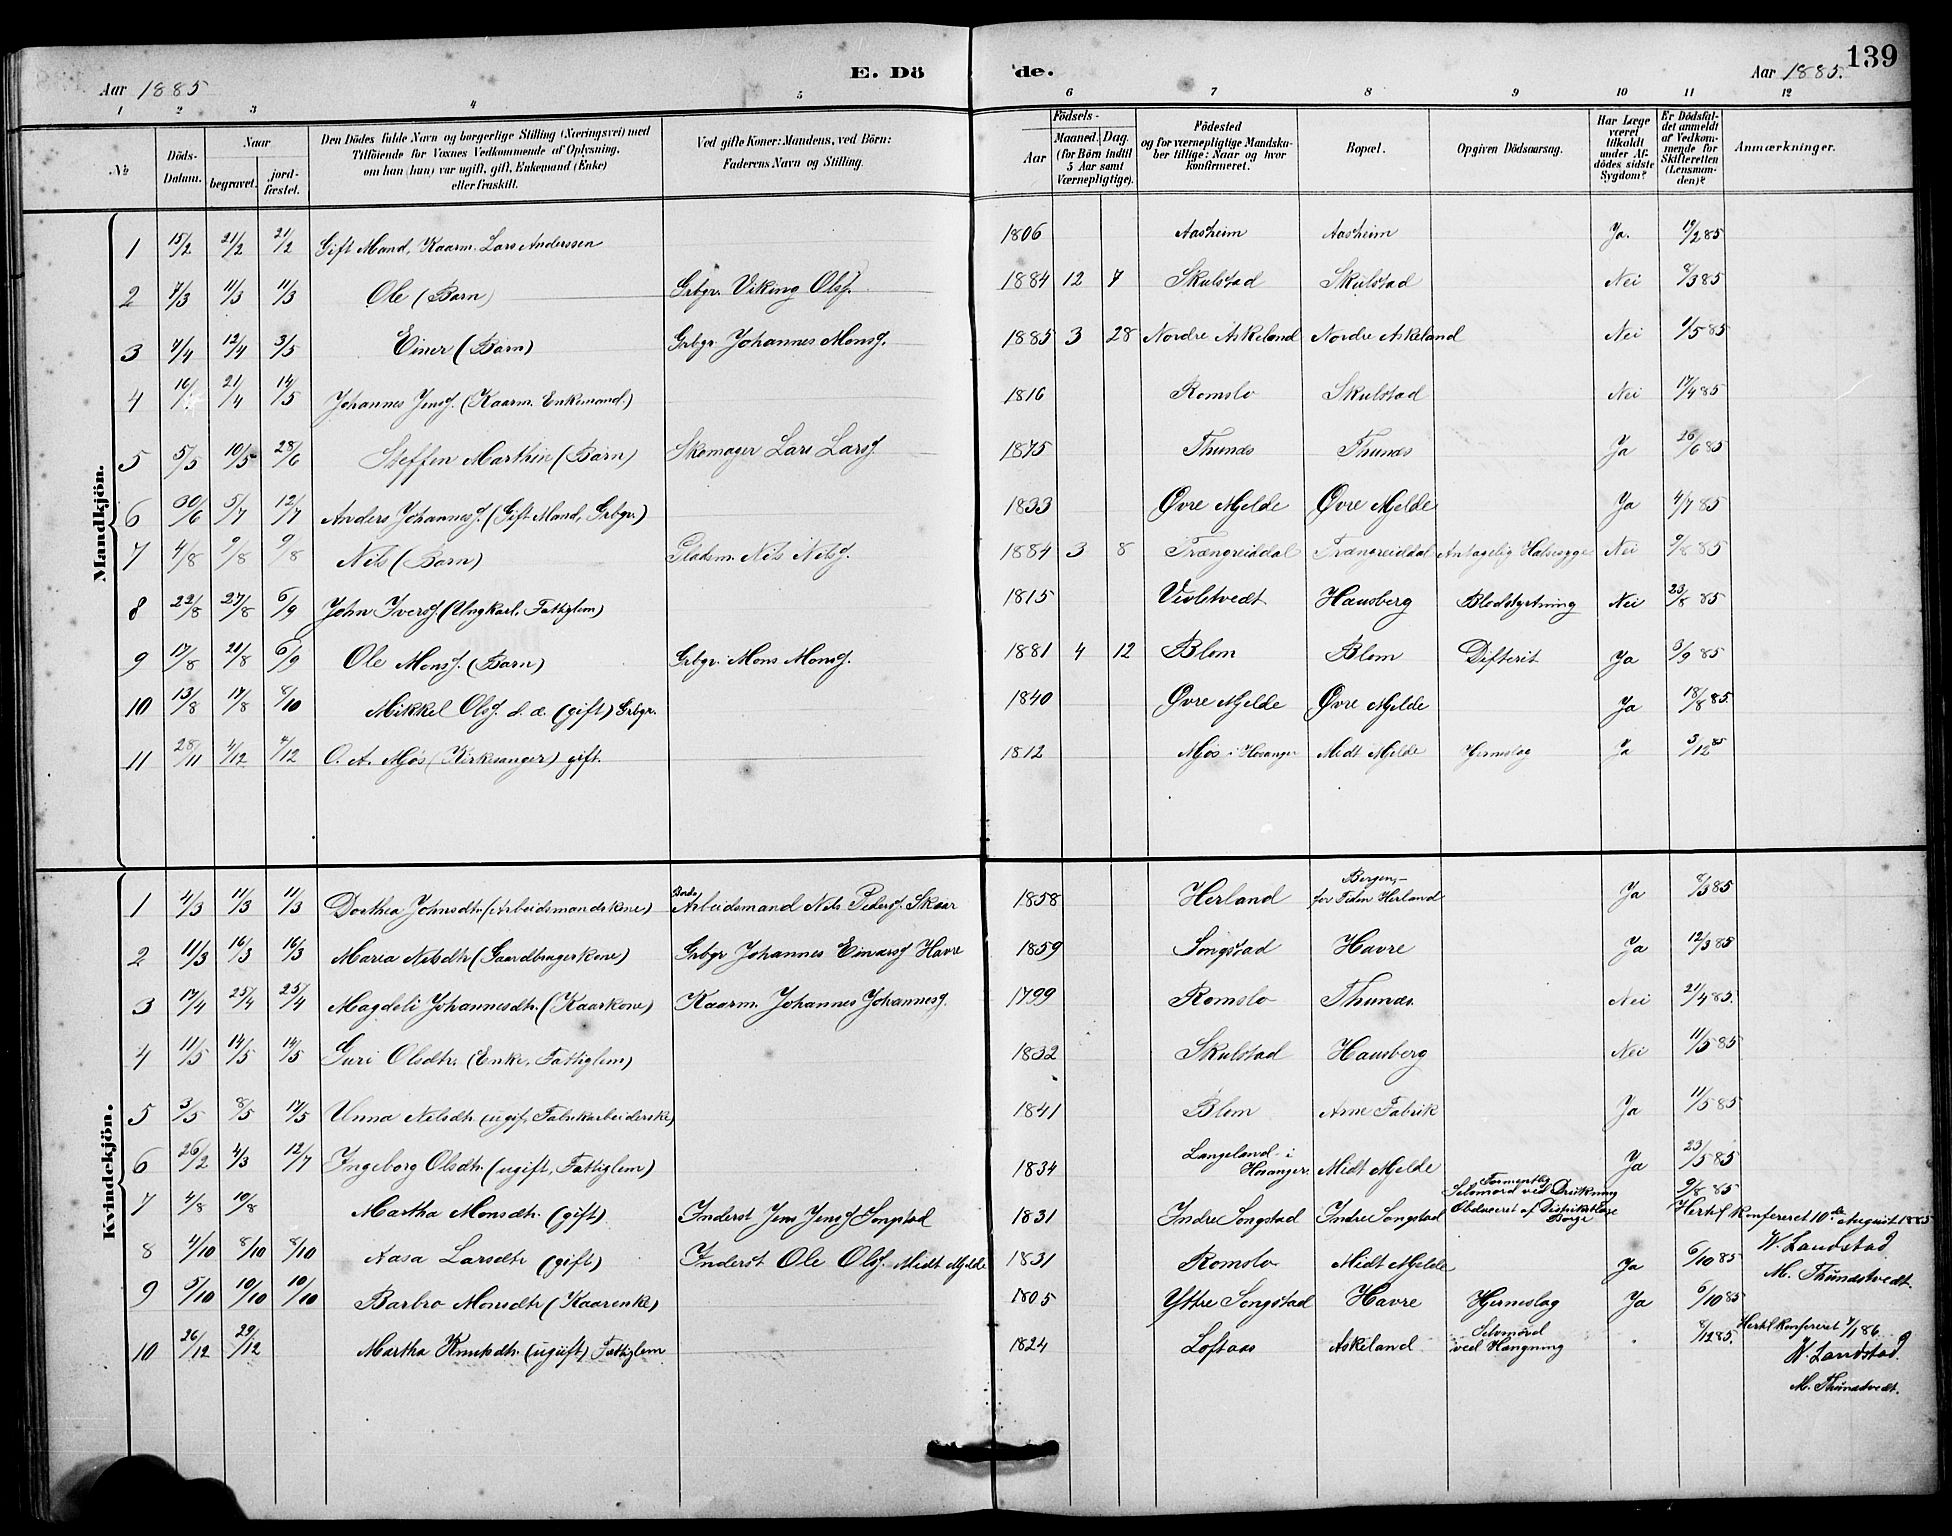 139
Aar 1885
E. Dö
de.
Aar 1885.
1 2 3 4 5 6 7 8 9 10 11 12
№
Döds-Datum.
Naar
begravet.
jord-fæstet.
Den Dödes fulde Navn og borgerlige Stilling (Næringsvei) med
Tilföiende for Voxnes Vedkommende af Oplysning,
om han (hun) var ugift, gift, Enkemand (Enke)
eller fraskilt.
Ved gifte Koner: Mandens, ved Börn:
Faderens Navn og Stilling.
Födsels-
Aar
Maaned. Dag.
(for Börn indtil
5 Aar samt
Værnepligtige).
Födested
og for værnepligtige Mandska-
ber tillige: Naar og hvor
konfirmeret.
Bopæl.
Opgiven Dödsaarsag.
Har Læge
været
tilkaldt
under Af-
dödes sidste
Sygdom?
Er Dödsfal-
det anmeldt
af Vedkom-
mende for
Skifteretten
(Lensman-
den)?
Anmærkninger.
Mandkjön.
1 15/2 21/2 21/2 Gift Mand, Kaarm. Lars Anderssen 1806 Aasheim Aasheim Ja. 19/2 85
2 7/3 11/3 11/3 Ole (Barn) Grbgr. Viking Olsf. 1884 12 7 Skulstad Skulstad Nei 8/3 85
3 7/4 12/4 3/5 Einer (Barn) Grbgr. Johannes Monsf. 1885 3 28 Nordre Askeland Nordre Askeland Nei 1/5 85
4 16/4 21/4 14/5 Johannes Jensf. (Kaarm. Enkemand) 1816 Romslo Skulstad Nei 17/4 85
5 5/5 10/5 28/6 Steffen Marthin (Barn) Skomager Lars Larsf. 1875 Thunes Thunes Ja 26/6 85
6 30/6 5/7 12/7 Anders Johannesf. (Gift Mand, Grbgr.) 1833 Øvre Mjelde Øvre Mjelde Ja 4/7 85
7 4/8 9/8 9/8 Nils (Barn) Pladsm. Nils Nilsf. 1884 3 8 Trængreiddal Trængreiddal Antagelig Halssyge Nei 9/8 85
8 22/8 27/8 6/9 John Iversf. (Ungkarl, Fattiglem) 1815 Hausberg Blodstyrtning Nei 23/8 85
9 17/8 21/8 6/9 Ole Monsf. (Barn) Grbgr. Mons Monsf. 1881 4 12 Blom Blom Difterit Ja 3/9 85
10 13/8 17/8 8/10 Mikkel Olsf. d. æ. (gift) Grbgr. 1840 Øvre Mjelde Øvre Mjelde Ja 18/8 85.
11 28/11 4/12 4/12 O. A. Mjøs (Kirkesanger) gift. 1812 Mjøs i Hosanger Midt Mjelde Hjerneslag Ja 3/12 85
Kvindekjön.
1 4/3 11/3 11/3 Dorthea Johnsdtr. (Arbeidsmandskone) Arbeidsmand Nils Pedersf. Skaar 1858 Herland Bergen,- for Tiden Herland Ja 8/3 85
2 11/3 16/3 16/3 Maria Nilsdtr (Gaardbrugerkone) Grbgr Johannes Einarsf Havre 1859 Songstad Havre Ja 12/3 85
3 17/4 25/4 25/4 Magdeli Johannesdtr. (Kaarkone) Kaarm. Johannes Johannesf. 1799 Romslo Thunes. Nei 21/4 85.
4 11/5 14/5 14/5 Guri Olsdtr. (Enke, Fattiglem) 1832 Skulstad Hausberg Nei 11/5 85
5 3/5 8/5 17/5 Unna Nilsdtr (ugif, Fabrikarbeiderske) 1841 Blom Arne Fabrik Ja 11/5 85
6 26/2 4/3 12/7 Ingeborg Olsdtr. (ugift, Fattiglem) 1834 Langeland i Hosanger. Midt Mjelde Ja 23/5 85
7 4/8 10/8 Martha Monsdtr. (gift) Inderst Jens Jensf Songstad 1831 Indre Songstad Indre Songstad Formentlig Selvmord ved Drukning Obduceret af Distriktslæge Borge 9/8 85 Hertil konfereret 10de August 1885
W. Landstad
M. Thunestvedt.
8 4/10 8/10 8/10 Aasa Larsdtr (gift) Inderst Ole Olsf. Midt Mjelde 1831 Romslo Midt Mjelde Ja 6/10 85
9 5/10 10/10 10/10 Barbro Monsdtr (Kaarenke) 1805 Yttre Songstad Havre Hjerneslag Ja 6/10 85
10 26/12 29/12 Martha Knutsdtr. (ugift) Fattiglem 1824 Loftaas Askeland Selvmord ved Hængning 8/12 85. Hertil konfereret 7/1 86.
W. Landstad.
M. Thunestvedt.